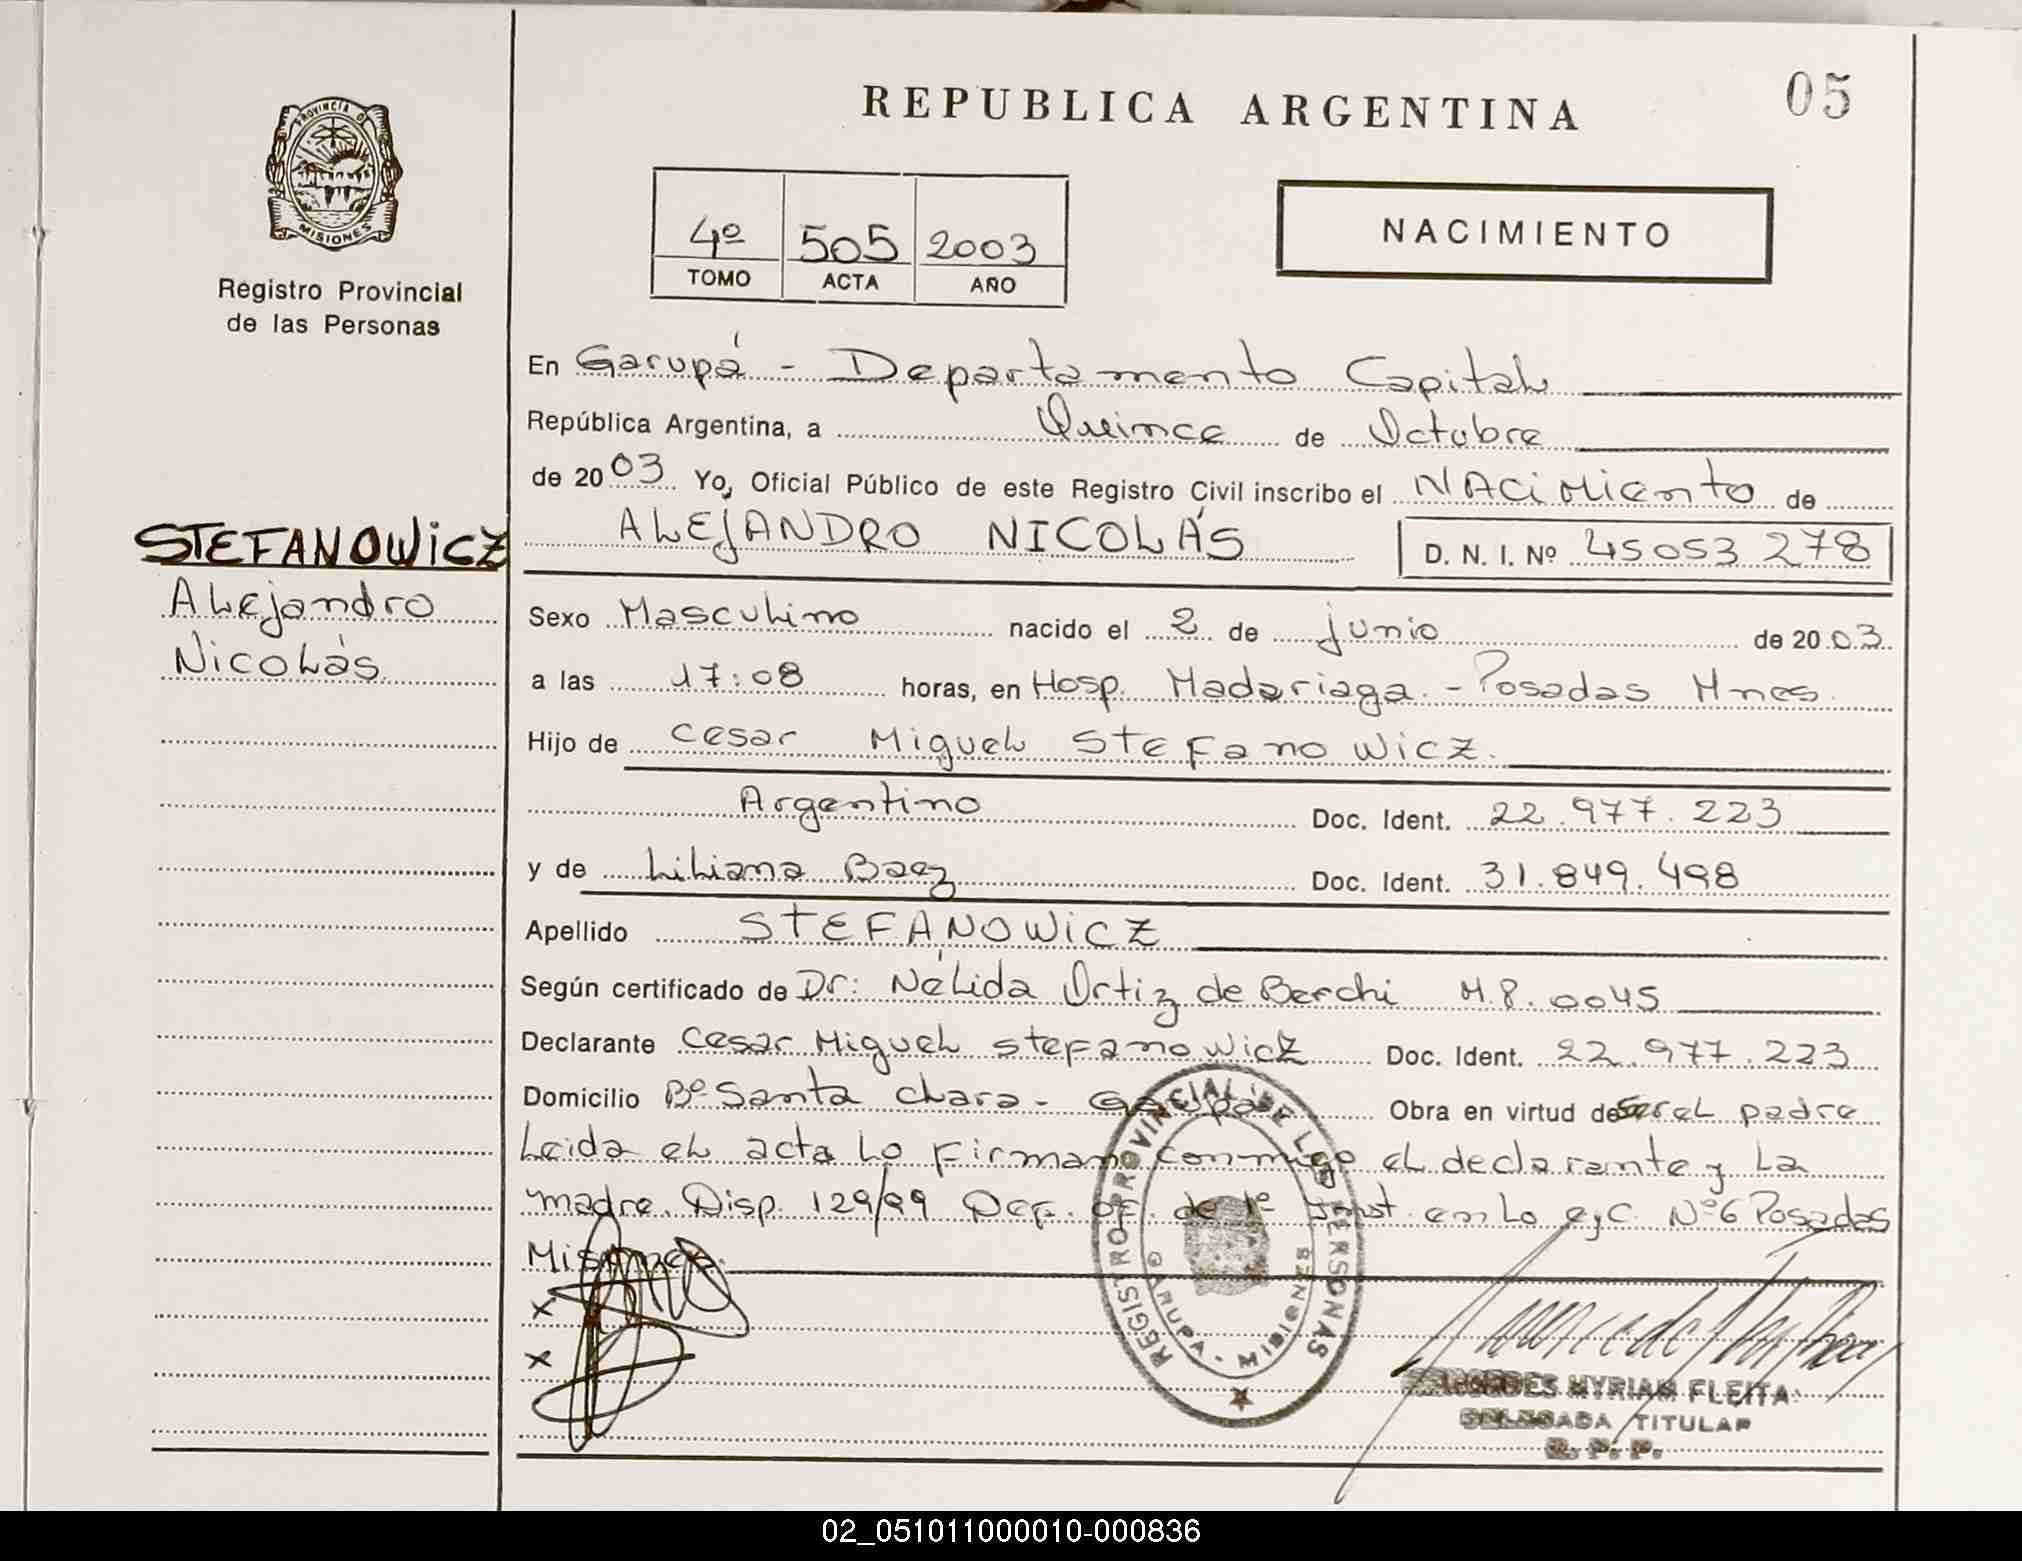 REPUBLICA ARGENTINA
05
PROVINCIA D
MISIONES
Registro Provincial
de las Personas
4º 505 2003
TOMO ACTA AÑO
NACIMIENTO
En Garupá - Departamento Capital
República Argentina, a Quince de Octubre
de 2003 Yo, Oficial Público de este Registro Civil inscribo el NACiMiento de
ALEJANDRO NICOLÁS D. N. I. Nº 45053278
STEFANOWiCZ
Alejandro
Nicolás
Sexo Masculino nacido el 2 de junio de 2003
a las 17:08 horas, en Hosp. Madariaga. - Posadas Mnes.
Hijo de Cesar Miguel Stefanowicz.
Argentino Doc. Ident. 22.977.223
y de Liliana Baez Doc. Ident. 31.849.498
Apellido STEFANOWiCZ
Según certificado de Dr: Nélida Ortiz de Berchi M.P. 0045
Declarante Cesar Miguel Stefanowicz Doc. Ident. 22.977.223
Domicilio Bº Santa Clara - Garupá Obra en virtud de ser el padre
Leida el acta lo firman conmigo el declarante y la
madre. Disp. 129/99 Def. Of. de 1º Inst. en lo C y C. Nº6 Posadas
Misiones.
x
x
REGISTRO PROVINCIAL DE LAS PERSONAS
GARUPA - MISIONES
MYRIAM FLEITA
DELEGADA TITULAR
R. P. P.
02_051011000010-000836